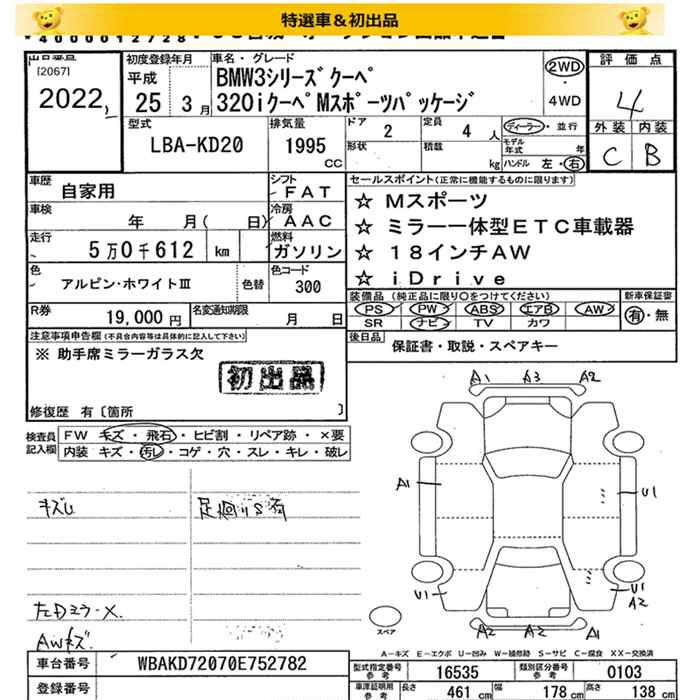 特選車＆初出品
*4000012728*
出品番号
[2067]
2022
初度登録年月
平成
25 3月
車名・グレード
BMW3シリーズクーペ
320iクーペMスポーツパッケージ
2WD
・
4WD
評価点
4
外装 内装
C B
型式
LBA-KD20
排気量
1995
CC
ドア
2
定員
4 人
形状
積載
kg
ディーラー・並行
モデル年式 年
ハンドル 左・右
車歴
自家用
シフト
FAT
車検
年 月( 日)
冷房
AAC
走行
5万0千612 km
燃料
ガソリン
色
アルピン・ホワイトIII
色替
色コード
300
R券
19,000円
名変通知期限
月 日
セールスポイント(正常に機能するものに限ります)
☆ Mスポーツ
☆ ミラー一体型ETC車載器
☆ 18インチAW
☆ iDrive
装備品 (純正品に限り○をつけてください)
PS PW ABS エアB AW
SR ナビ TV カワ
新車保証書
有・無
後日品
保証書・取説・スペアキー
注意事項申告欄(不具合内容等は具体的に記入して下さい)
※ 助手席ミラーガラス欠
初出品
修復歴 有〔箇所 〕
検査員記入欄
FW キズ・飛石・ヒビ割・リペア跡・×要
内装 キズ・汚レ・コゲ・穴・スレ・キレ・破レ
キズU
足廻りS有
左Dミラー×
AWキズ
A1 A3 A2
A1
U1
U1
U1
A2
A2 A2 A1
スペア
A－キズ E－エクボ U－凹み W－補修跡 S－サビ C－腐食 XX－交換済
車台番号
WBAKD72070E752782
登録番号
型式指定番号
参考
16535
類別区分番号
参考
0103
車庫証明用
参考
長さ
461 cm
幅
178 cm
高さ
138 cm